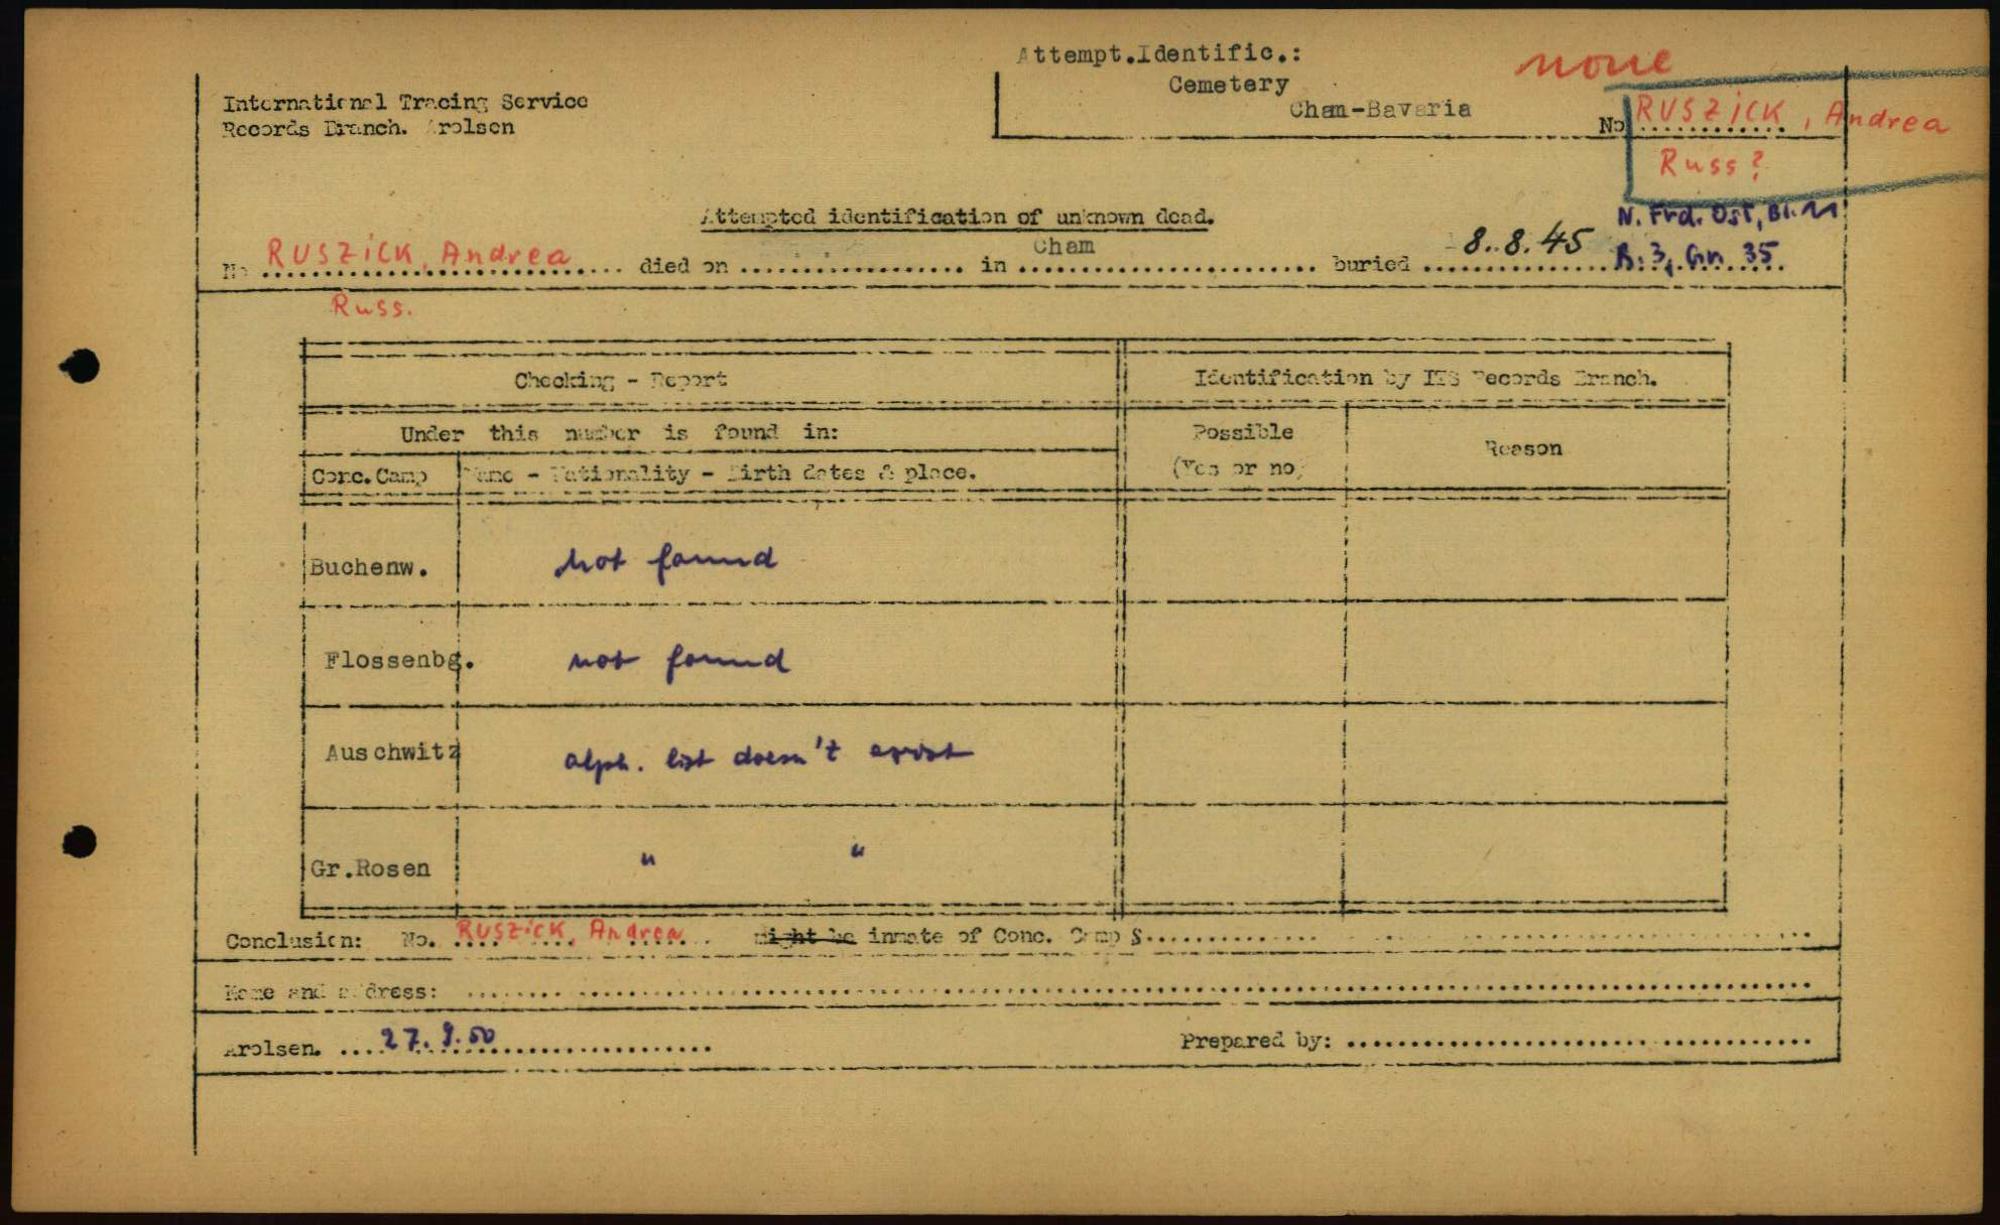 Attempt.Identific.:
Cemetery
Cham-Bavaria
none
International Tracing Service
Records Branch. Arolsen
No RUSZICK, Andrea
Russ?
Attempted identification of unknown dead.
N. Frd. Ost, Bl. 11
No RUSZICK, Andrea died on ................. in Cham buried 8.8.45 R. 3, Gr. 35
Russ.
Checking - Report
Identification by ITS Records Branch.
Under this number is found in:
Possible
(Yes or no)
Reason
Conc.Camp
Name - Nationality - Birth dates & place.
Buchenw. not found
Flossenbg. not found
Auschwitz alph. list doesn't exist
Gr.Rosen " "
Conclusion: No. RUSZICK, Andrea might be inmate of Conc. Camp S..............
Name and address: ..............
Arolsen. 27.9.50
Prepared by: ..............